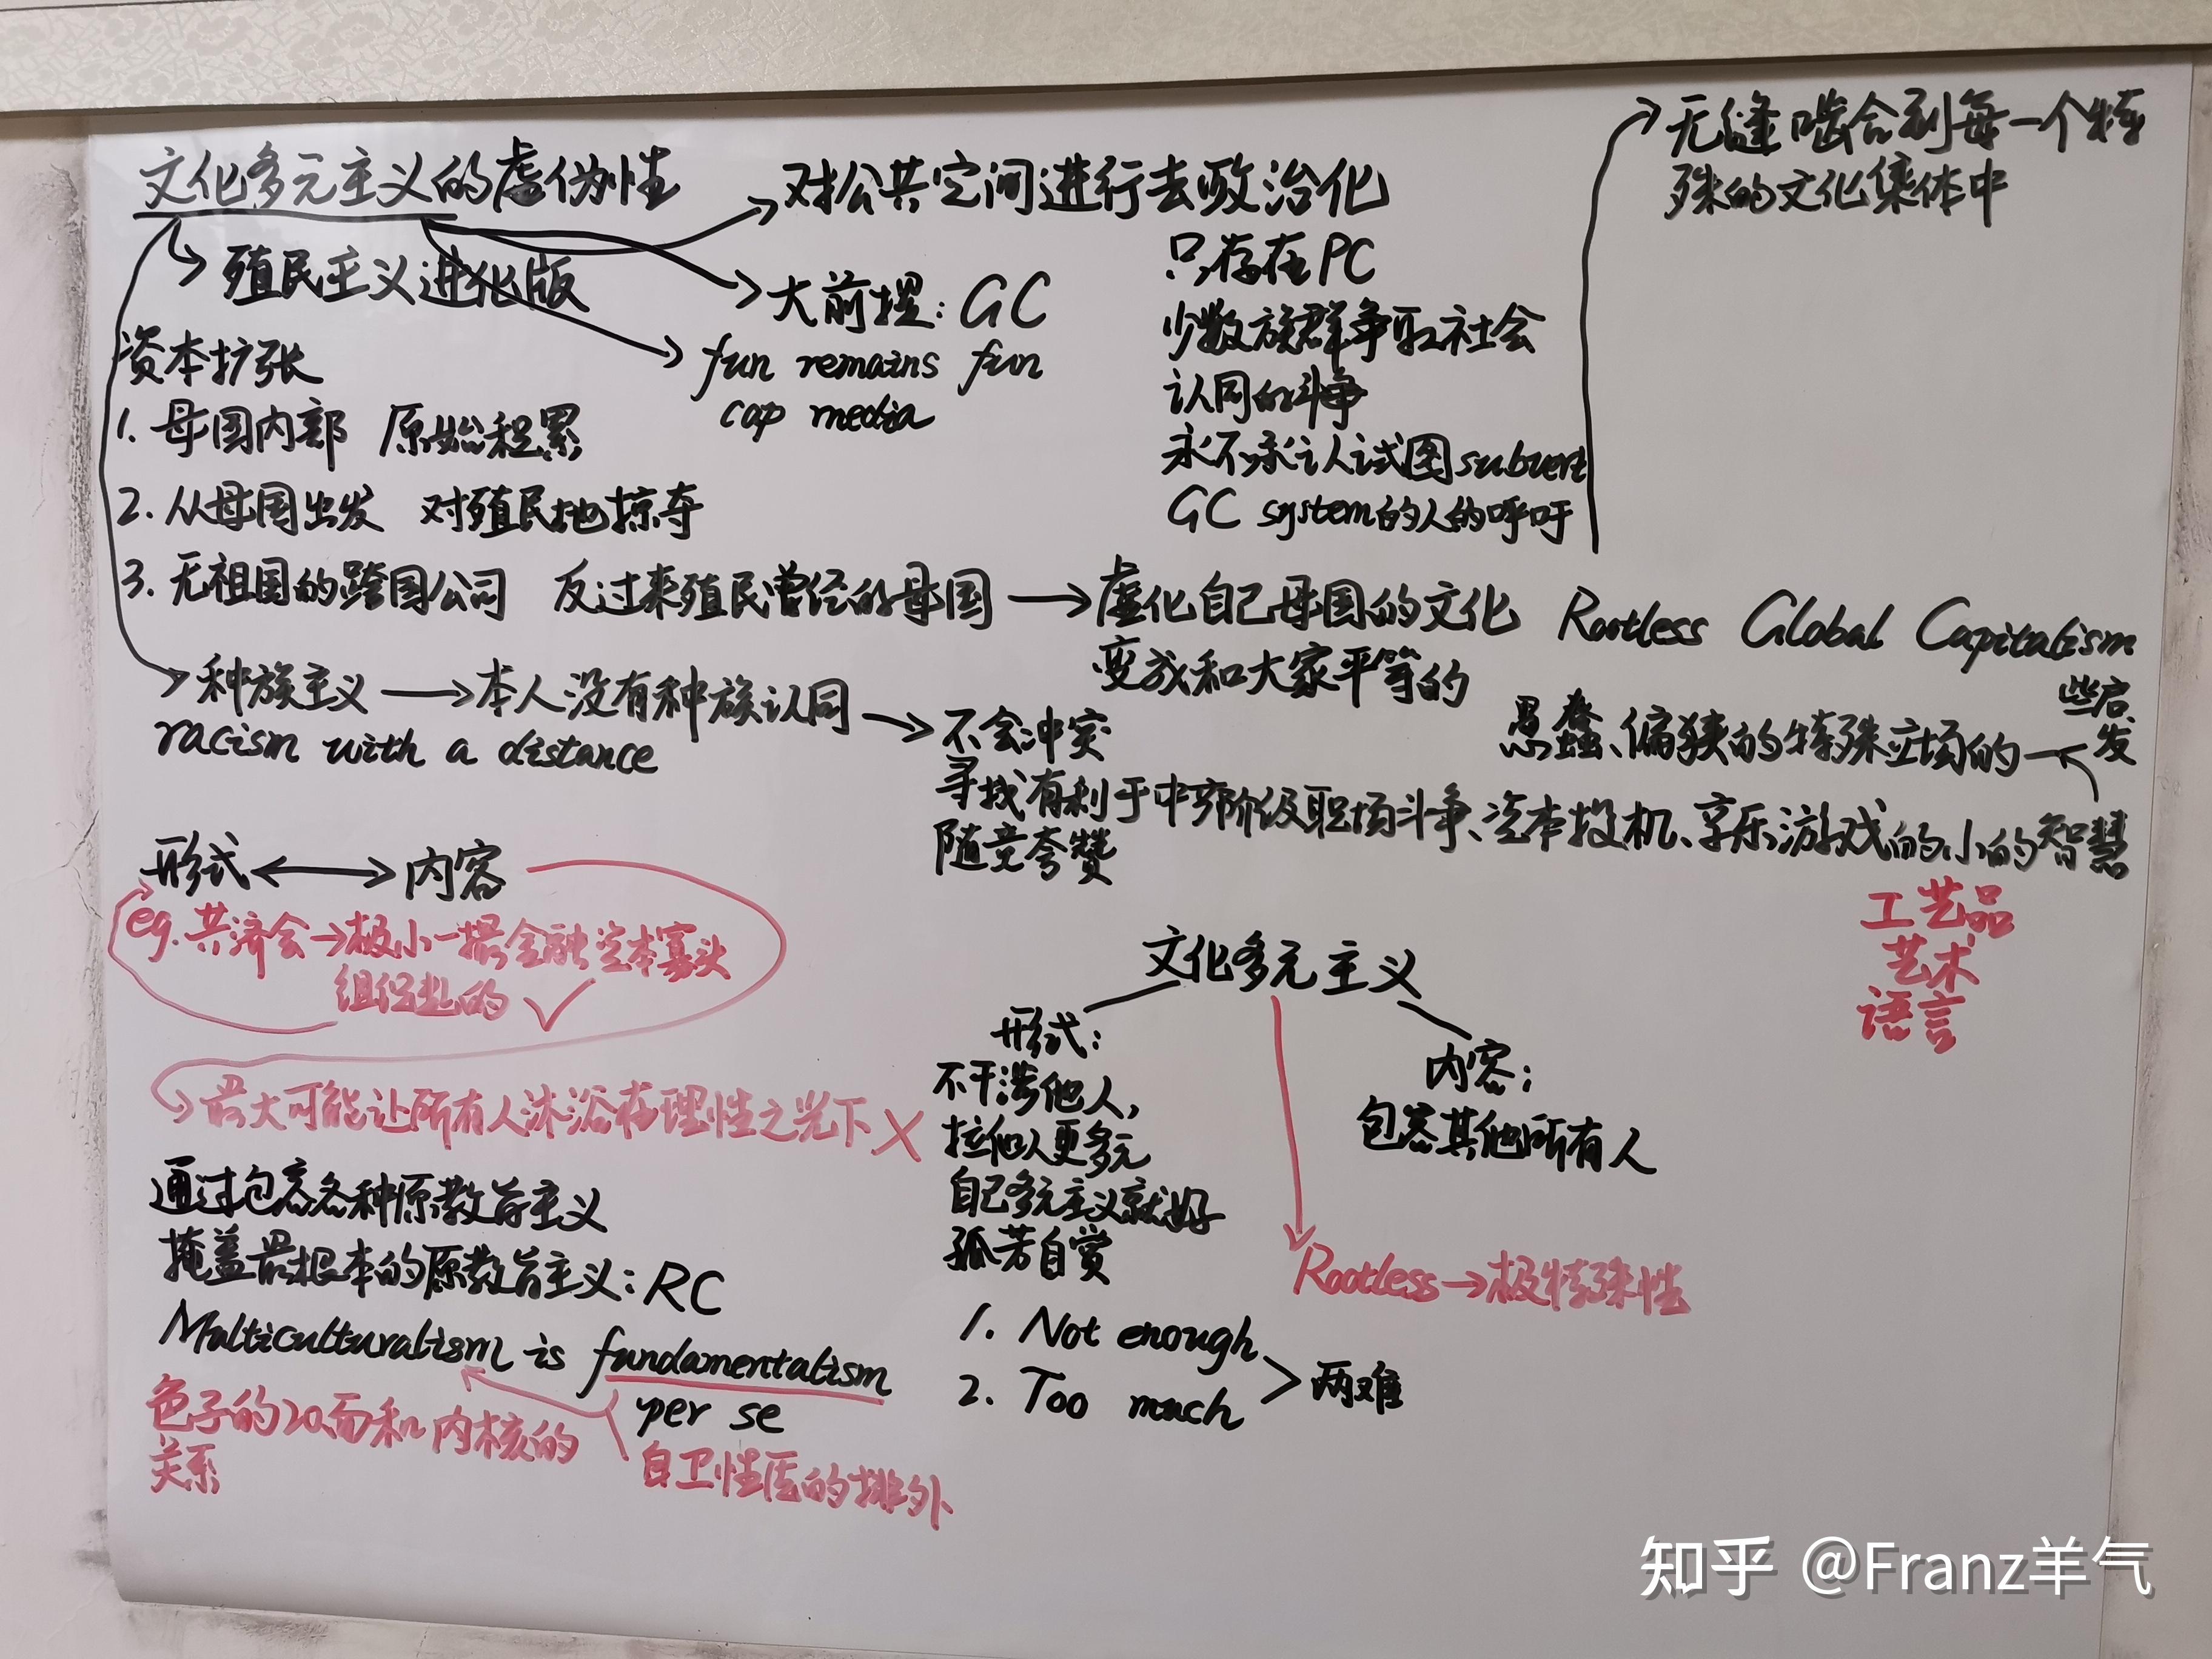 文化多元主义的虚伪性
殖民主义进化版
对公共空间进行去政治化
大前提：GC
fun remains fun
cap media
只存在PC
少数族群争取社会
认同的斗争
永不承认试图subvert
GC system的人的呼吁
无缝啮合到每一个特
殊的文化集体中
资本扩张
1. 母国内部 原始积累
2. 从母国出发 对殖民地掠夺
3. 无祖国的跨国公司 反过来殖民曾经的母国
虚化自己母国的文化
变成和大家平等的
Rootless Global Capitalism
种族主义
本人没有种族认同
racism with a distance
不会冲突
寻找有利于中产阶级职场斗争、资本投机、享乐游戏的小的智慧
随意夸赞
些启
发
愚蠢、偏狭的特殊立场的
工艺品
艺术
语言
形式
内容
eg. 共济会→极小一撮金融资本寡头
组织的
最大可能让所有人沐浴在理性之光下
通过包容各种原教旨主义
掩盖最根本的原教旨主义：RC
Multiculturalism is fundamentalism
per se
色子的20面和内核的
关系
自卫性质的排外
文化多元主义
形式：
不干涉他人，
拉他人更多元
自己多元主义就好
孤芳自赏
内容：
包容其他所有人
Rootless→极特殊性
1. Not enough
2. Too much
两难
知乎 @Franz羊气